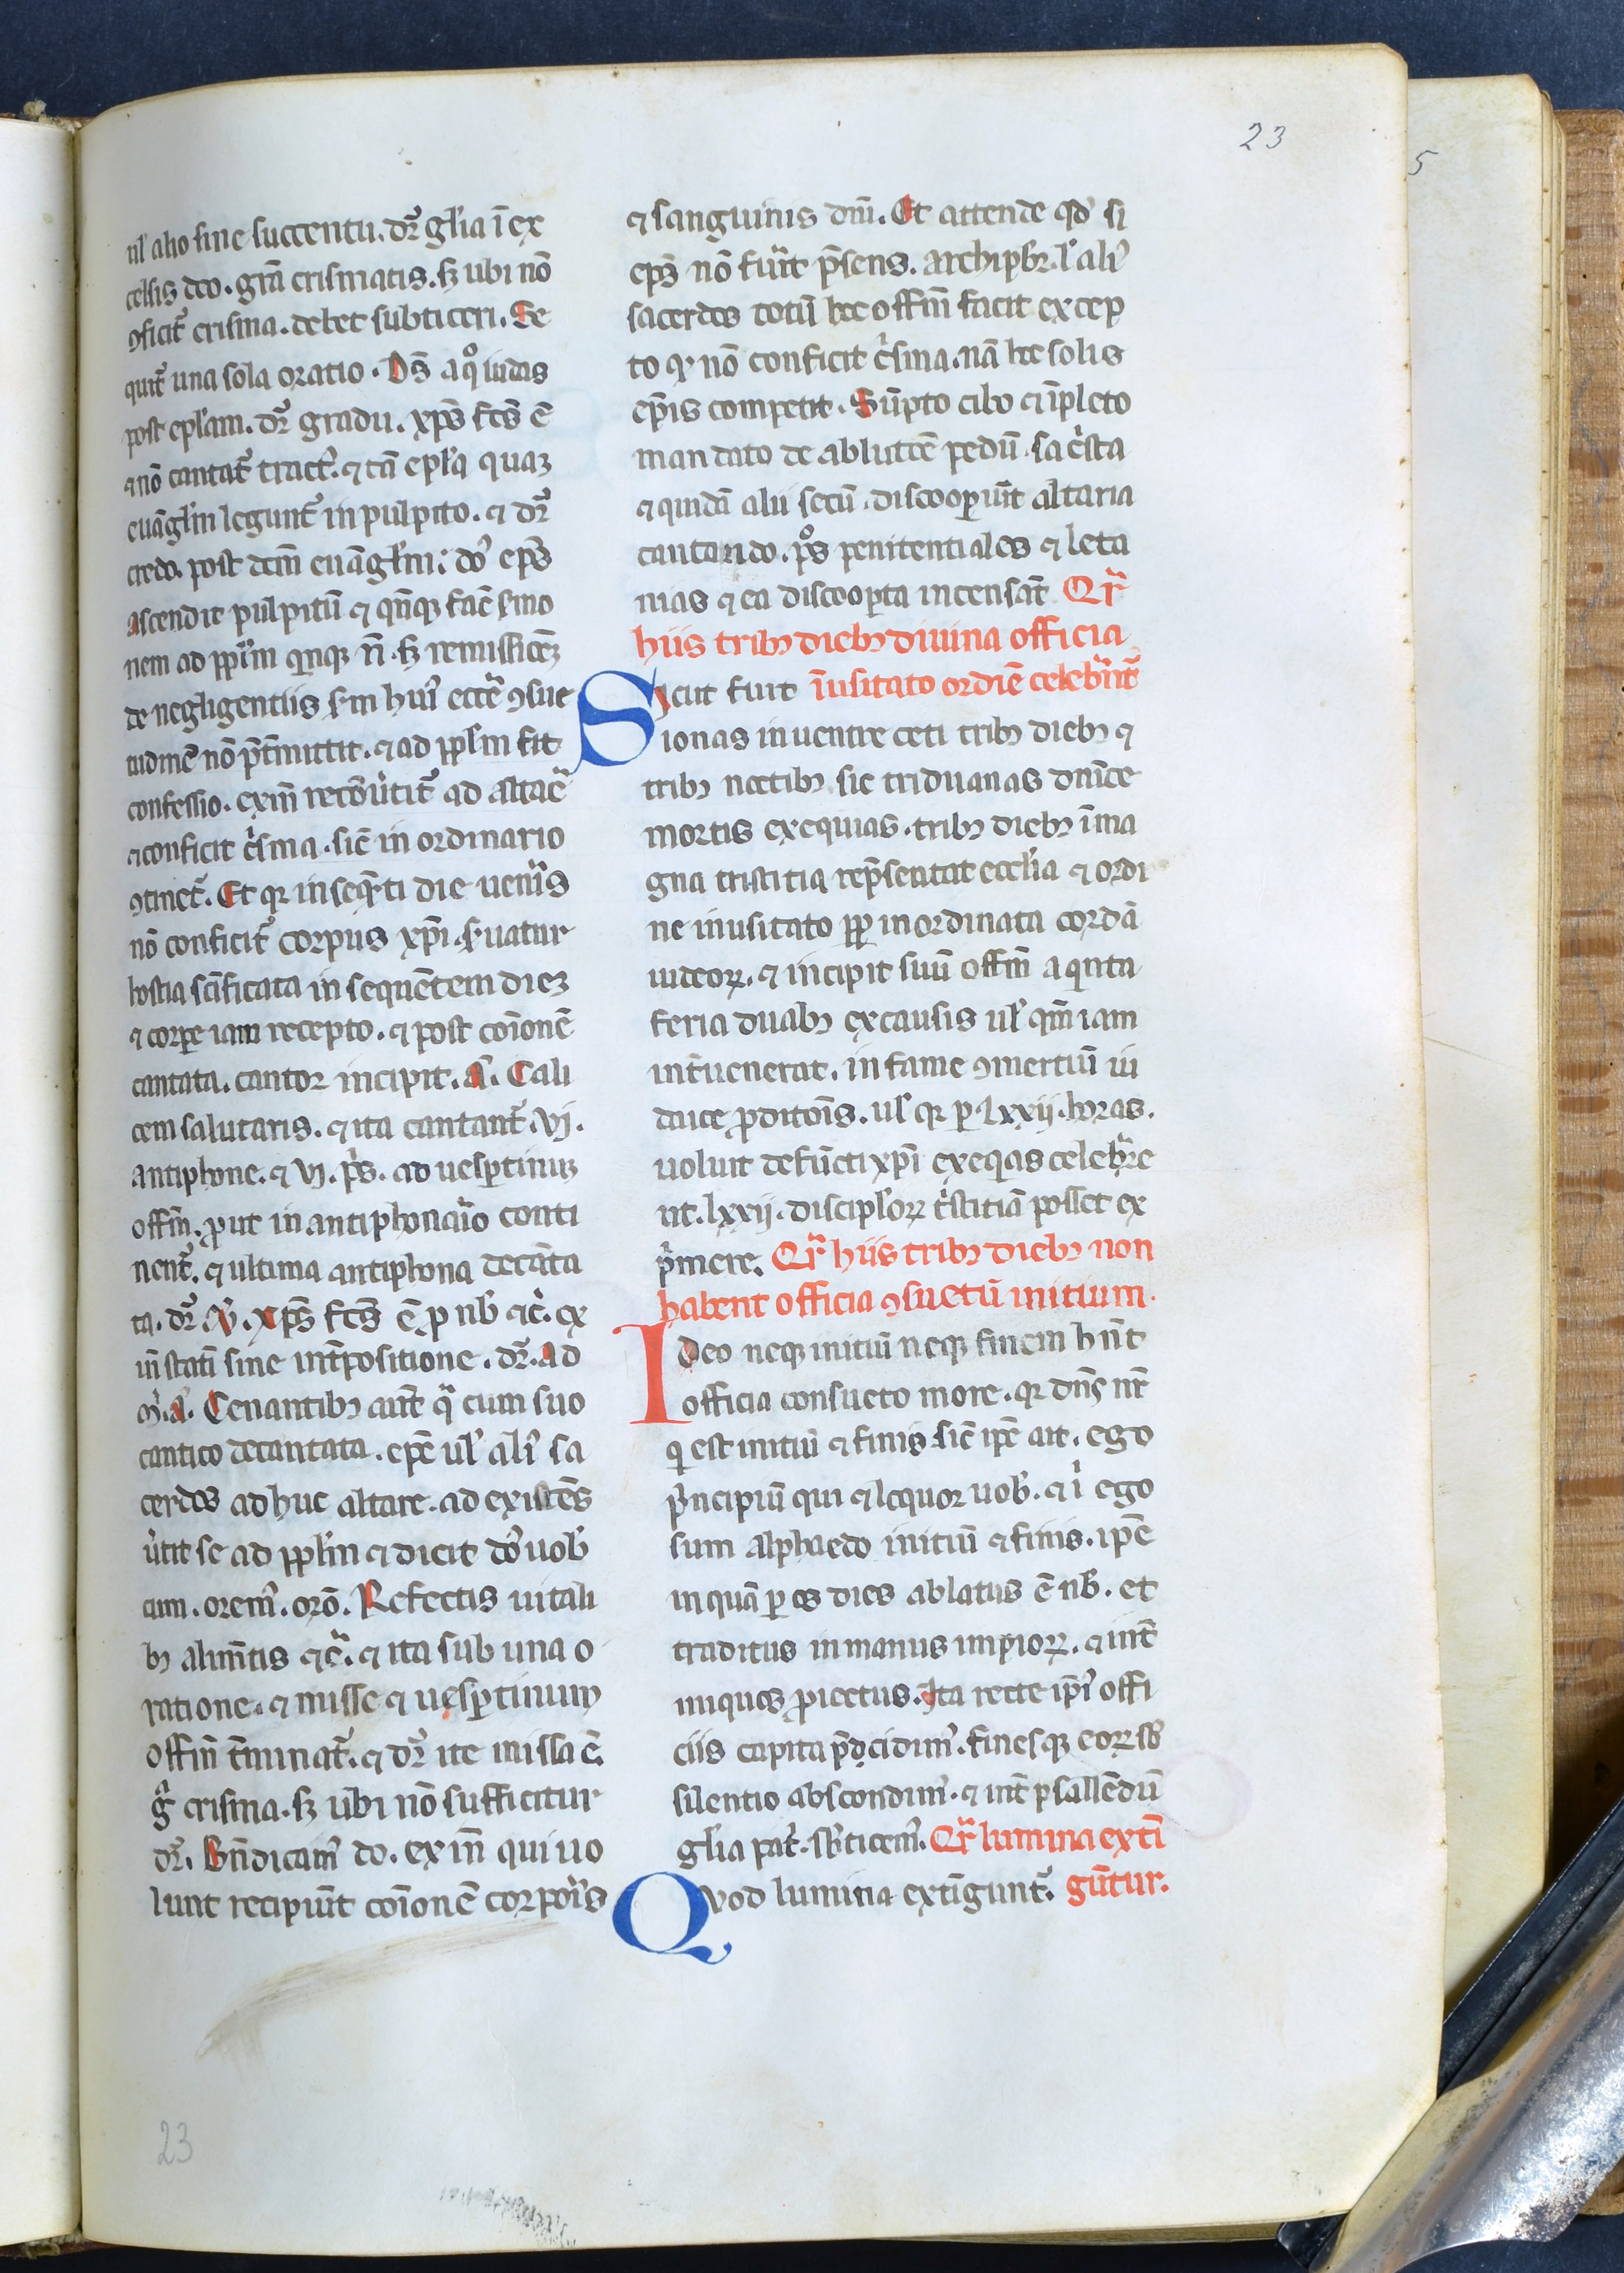 23
5
ul̕ alio sine succentu. dr̄ gl̕ia ī ex
celsis deo. grā crismatis. sꝫ ubi nō
ꝯficit᷑ crisma. debet subticeri. Se
quit᷑ una sola oratio. Ds̄ a qͦ iudas
post epl̕am. dr̄ gradu. xp̄s fc̄s ē
⁊ nō cantat᷑ tract᷒. ⁊ tā epl̕a quaꝫ
euāgl̕m legunt᷑ in pulpito. ⁊ dr̄
credo. post dc̄m euāgl̕m. do᷒ ep̄s
ascendit pulpitū ⁊ qn̄qꝫ fac̄ s̕mo
nem ad ppl̕m qn̄qꝫ n̄. sꝫ remissiōeꝫ
de negligentiis s̕m hui᷒ ecc̄e ꝯsue
tudinē nō p̄t̕mittit. ⁊ ad ppl̕m fit
confessio. exin̄ reuert̕it᷑ ad altar̄
⁊ conficit c̕sma. sic̄ in ordinario
ꝯtinet᷑. Et qꝛ in seqn̄ti die uen̕is
nō conficit᷑ corpus xp̄i. s̕uatur
hostia sc̄ificata in sequētem dieꝫ
⁊ corpe iam recepto. ⁊ post cōionē
cantata. cantor incipit. a̕. Cali
cem salutaris. ⁊ ita cantant᷑. vj.
antiphone. ⁊ vj. p̄s. ad uesp̱tinuꝫ
offm̄. ꝓut in antiphonar̕io conti
nent᷑. ⁊ ultima antiphona decāta
ta. dr̄. v̕. xp̄s fc̄s ē ꝓ nb̕ ⁊c̕. ex
in̄ statī sine int̕positione. dr̄. ad
m̕. a̕. Cenantibꝫ aut̄ qͣ cum suo
cantico decantata. epc̄ ul̕ ali᷒ sa
cerdos ad huc altare. ad existēs
u̕tit se ad ppl̕m ⁊ dicit do᷒ uob̕
cum. orem᷒. orō. Refectis uitali
bꝫ alim̄tis ⁊c̄. ⁊ ita sub una o
ratione. ⁊ misse ⁊ uesp̱tinum
offm̄ t̕minat᷑. ⁊ dr̄ ite missa ē.
gͣ crisma. sꝫ ubi nō sufficitur
dr̄. Bn̄dicam᷒ do. ex in̄ qui uo
lunt recipiūt cōionē corpor̕is
⁊ sanguinis dn̄i. Et attende qd̕ si
ep̄s nō fu̕it p̄sens. archip̄br. l̕ ali᷒
sacerdos totū hoc offm̄ facit excep
to qꝛ nō conficit c̕sma. nā hoc solis
ep̄is competit. Sūpto cibo ⁊ īpleto
mandato de ablutōe pedū. sac̕sta
⁊ quidā alii secū. discoop̱iūt altaria
cantando. pͦs penitentiales ⁊ leta
nias ⁊ ea discoop̱ta incensāt. Qr̄
hiis tribꝫ diebꝫ diuina officia
Sicut fuit īusitato ordīe celebr̄nt᷑
ionas in uentre ceti tribꝫ diebꝫ ⁊
tribꝫ noctibꝫ sic triduanas dn̄ice
mortis exequias. tribꝫ diebꝫ ī ma
gna tristitia rep̄sentat eccl̕ia ⁊ ordi
ne inusitato pp̱ inordinata cordā
iudeoꝝ. ⁊ incipit suū offm̄ a qͥnta
feria duabꝫ ex causis ul̕ qm̄ iam
int̕uenerat. infame ꝯmertiū iu
daice ꝓditōis. ul̕ qꝛ p̱ lxxij. horas.
uoluit defūcti xp̄i exeqͥas celebr̄e
ut. lxxij. discipl̕oꝝ t̕stitiā posset ex
p̕mere. Qr̄ hiis tribꝫ diebꝫ non
habent officia ꝯsuetū initium.
Ideo neqꝫ initiū neqꝫ finem hn̄t
officia consueto more. qꝛ dn̄s nr̄
qͥ est initiū ⁊ finis. sic̄ ip̄e ait. ego
p̕ncipiū qui ⁊ loquor uob̕. ⁊ i̕ ego
sum alpha et o initiū ⁊ finis. ip̄e
inquā p̱ os dies ablatus ē nb̕. et
traditus in manus impioꝝ. ⁊ int̄
iniquos ꝓiectus. Ita recte ip̄i᷒ offi
ciis capita p̄cidim᷒. finesqꝫ eoꝝ sb̕
silentio abscondim᷒. ⁊ int̄ psallēdū
gl̕ia pat̕. sb̕ticem᷒. Qr̄ lumina extī
Quod lumina extīgunt᷑. gūtur.
23